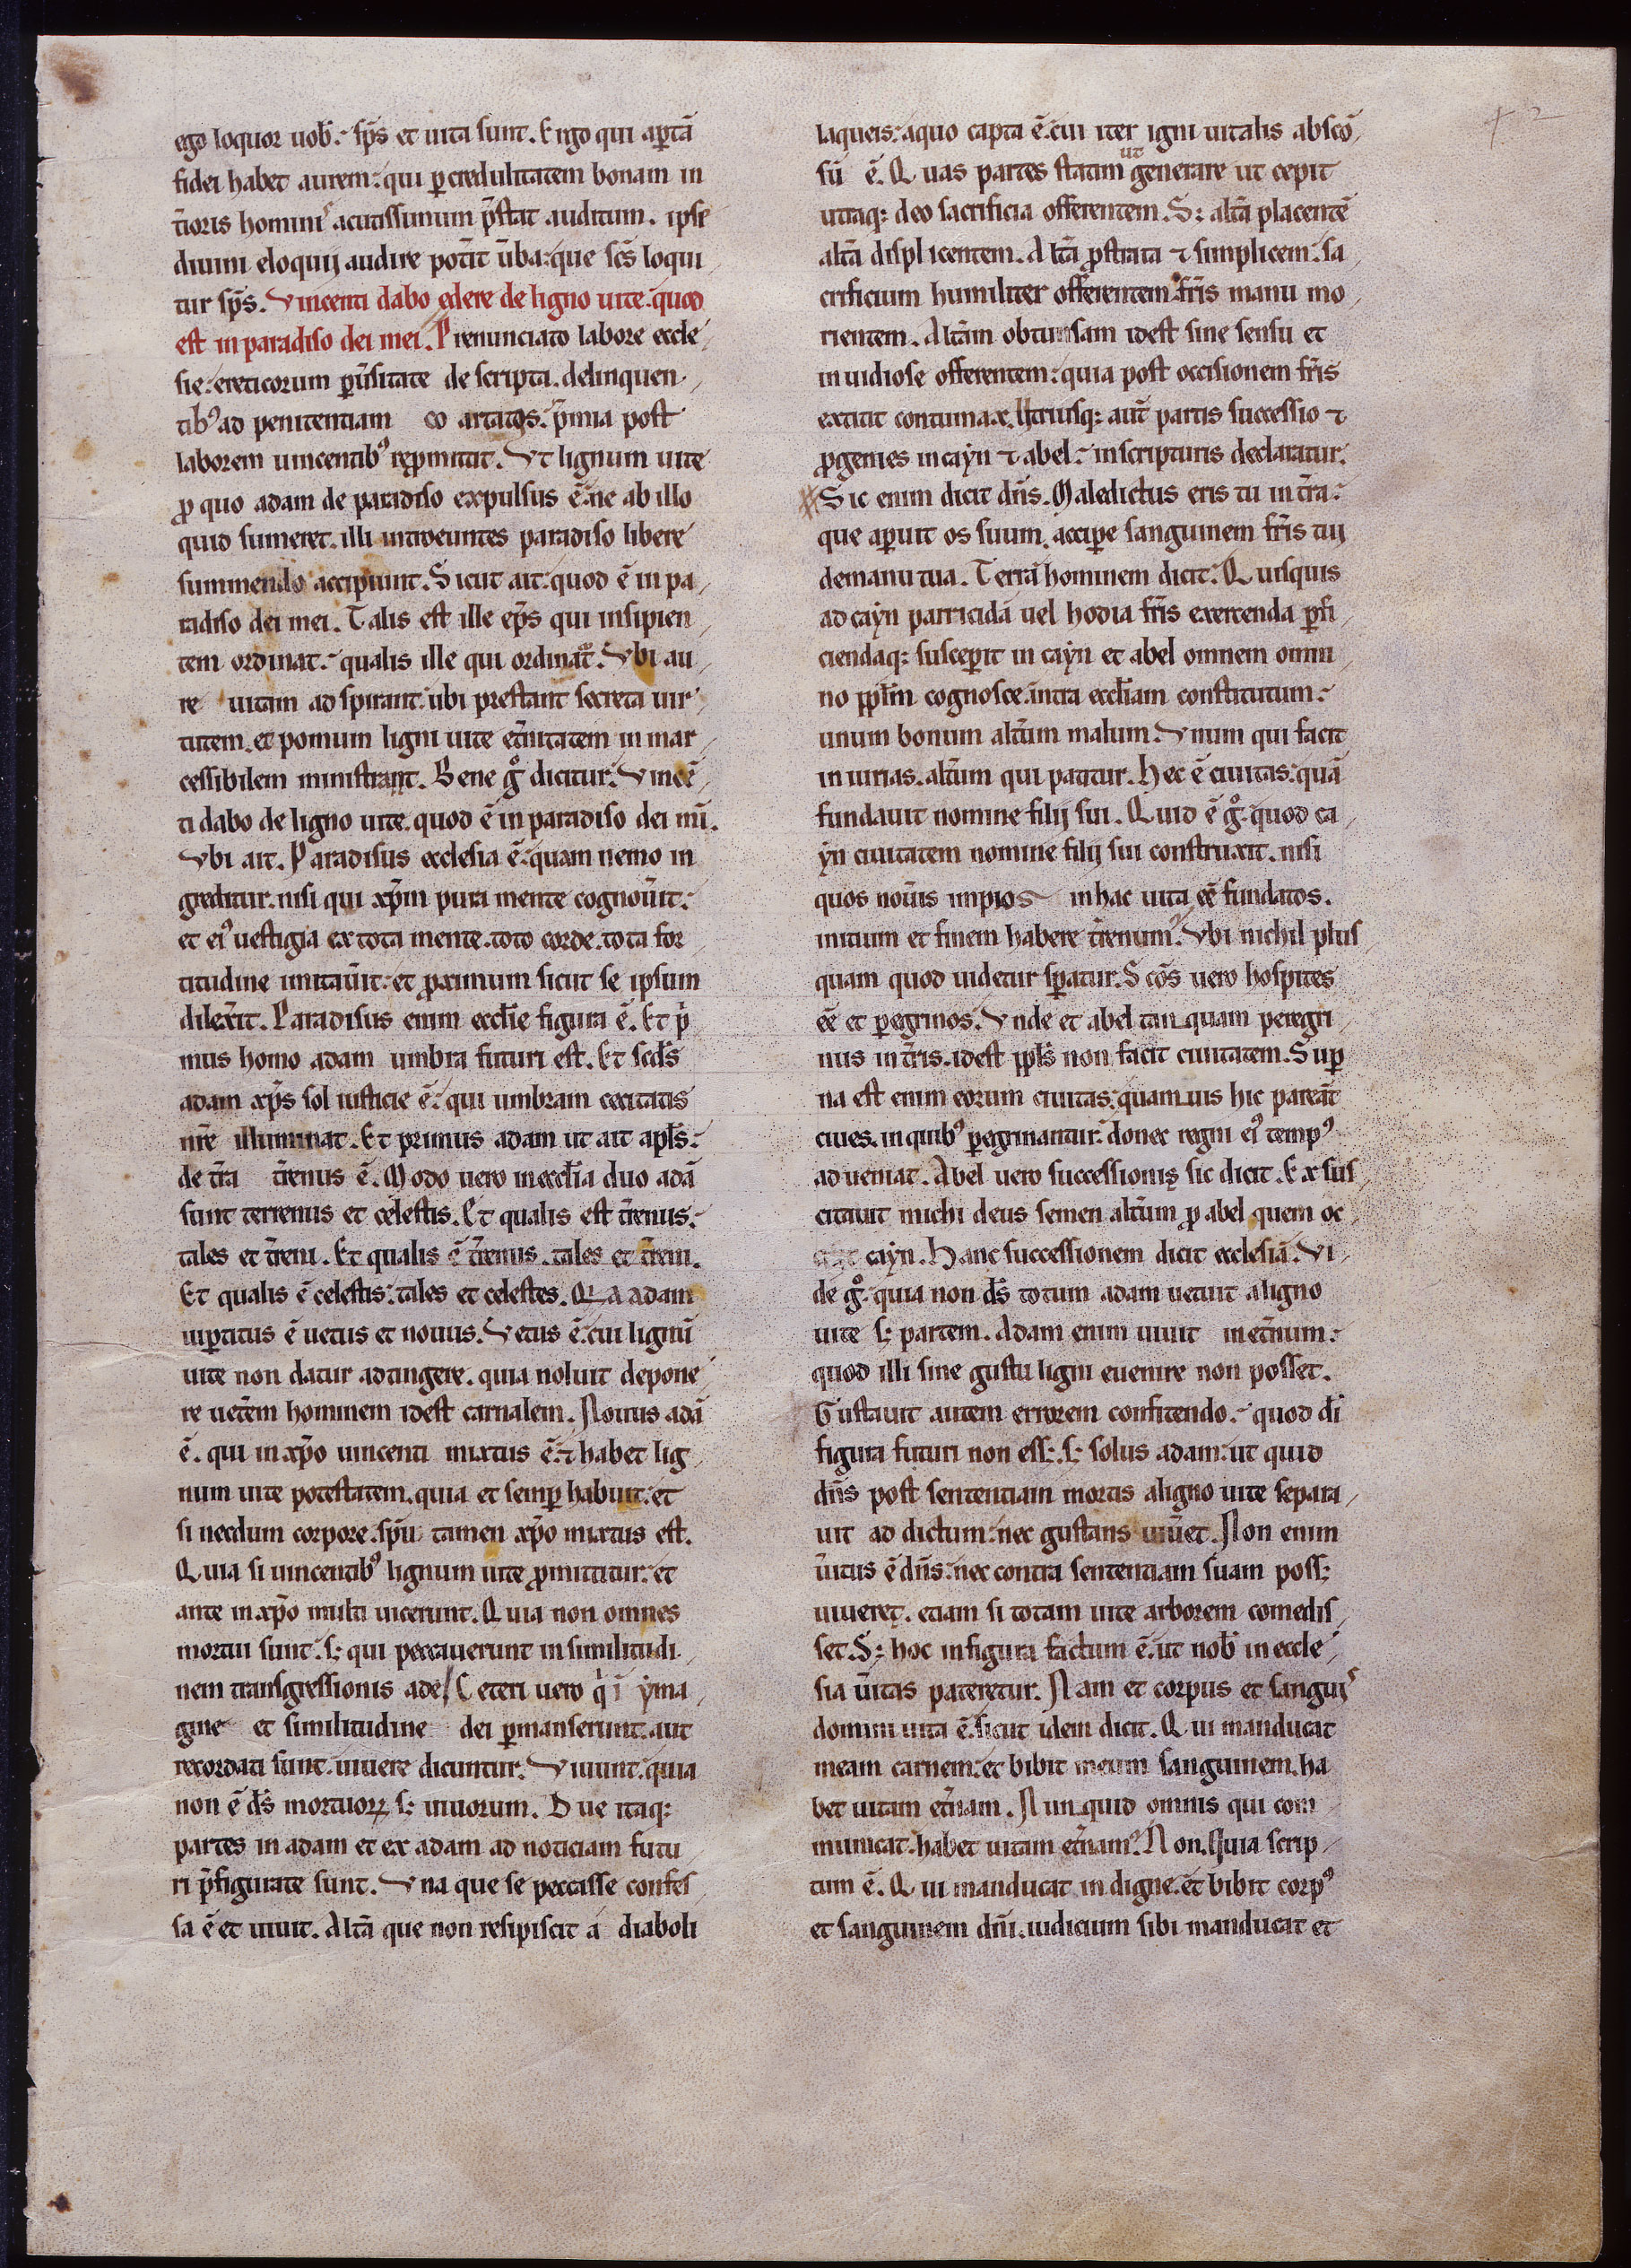 ego loquor uob̄. sp̄s et uita sunt. Ergo qui ap̄tā
fidei habet aurem: qui p̱ credulitatem bonam in
t̄ioris homini᾽ acutissimum p̄stat auditum. ipse
diuini eloquij audire pot̄it ūba: que sc̄s loqui
tur sp̄s. Vincenti dabo edere de ligno uite. quod
est in paradiso dei mei. Prenunciato labore eccle
sie: ereticorum ꝑūsitate descripta. delinquen
tibꝰ ad penitentiam coartatos. p̄mia post
laborem uincentibꝰ rep̱mittit. Vt lignum uite
ꝓ quo adam de paradiso expulsus ē: ne ab illo
quid sumeret. illi introeuntes paradiso libere
summendo accipiunt. Sicut ait: quod ē in pa
radiso dei mei. Talis est ille ep̄s qui insipien
tem ordinat. qualis ille qui ordinat̄. Vbi au
re uitam adspirant: ubi prestant secreta uir
tutem. et pomum ligni uite et̄nitatem inmar
cessibilem ministrant. Bene gͦ dicitur. Vincē
ti dabo de ligno uite. quod ē in paradiso dei mī.
Vbi ait. Paradisus ecclesia ē: quam nemo in
greditur. nisi qui xp̄m pura mente cognoūit:
et eiꝰ uestigia ex tota mente. toto corde. tota for
titudine imitaūit: et ꝓximum sicut se ipsum
dilex̄it. Paradisus enim eccl̄ie figura ē. Et p̄
mus homo adam umbra futuri est. Et scd̄s
adam xp̄s sol iusticie ē: qui umbram cecitatis
nr̄e illuminat. Et primus adam ut ait apl̄s:
de t̄ra t̄renus ē. Modo uero in eccl̄ia duo adā
sunt terrenus et celestis. Et qualis est t̄renus:
tales et t̄reni. Et qualis ē t̄renus. tales et t̄reni.
Et qualis ē celestis: tales et celestes. Q͛a adam
uiꝑtitus ē uetus et nouus. Vetus ē: cui lignū
uite non datur adtingere. quia noluit depone
re uet̄em hominem idest carnalem. Nouus adā
ē. qui in xp̄o uincenti mixtus ē: ⁊ habet lig
num uite potestatem. quia et semꝑ habuit: et
si necdum corpore. sp̄u tamen xp̄o mixtus est.
Quia si uincentibꝰ lignum uite ꝓmittitur: et
ante in xp̄o multi uicerunt. Quia non omnes
mortui sunt. s; qui peccauerunt in similitudi
nem transgressionis ade/ Ceteri uero q̇ ī yma
gine et similitudine dei ꝑmanserunt. aut
recordati sunt. uiuere dicuntur. Viuunt. quia
non ē d̄s mortuoꝝ s; uiuorum. Due itaq;
partes in adam et ex adam ad noticiam futu
ri p̄figurate sunt. Vna que se peccasse confes
sa ē et uiuit. Alt̄a que non resipiscit a diaboli
laqueis: aquo capta ē: cui iter igni uitalis abscō
sū ē. Quas partes statim ut generare ut cepit
utraq; deo sacrificia offerentem. S; alt̄ā placentē
alt̄ā displicentem. Alt̄ā ꝓstrata ⁊ simplicem: sa
crificium humiliter offerentem fr̄is manu mo
rientem. Alt̄am obtunsam idest sine sensu et
inuidiose offerentem: quia post occisionem fr̄is
extitit contumax. Utriusq; aut̄ partis successio ⁊
ꝓgenies in cayn ⁊ abel: in scripturis declaratur.
Sic enim dicit dn̄s. Maledictus eris tu in t̄ra:
que aꝑuit os suum. accipe sanguinem fr̄is tij
demanu tua. Terrā hominem dicit. Quisquis
ad cayn parricidā uel hodia fr̄is exercenda ꝑfi
ciendaq; susceꝑit in cayn et abel omnem omni
no pp̄lm cognosce. intra eccl̄iam constitutum:
unum bonum alt̄um malum. Vnum qui facit
iniurias. alt̄um qui patitur. Hec ē ciuitas: quā
fundauit nomine filij sui. Quid ē gͦ: quod ca
yn ciuitatem nomine filij sui construxit. nisi
quos noūis impios in hac uita eē fundatos.
initium et finem habere t̄renum. Vbi nichil plus
quam quod uidetur sꝑatur. Scōs uero hospites
eē et ꝑegrinos. Vnde et abel tanquam peregri
nus in t̄ris. idest ppl̄s non facit ciuitatem. Suꝑ
na est enim eorum ciuitas: quamuis hic pareāt
ciues. in quibꝰ ꝑegrinantur: donec regni eiꝰ tempꝰ
adueniat. Abel uero successionis sic dicit. Exsus
citauit michi deus semen alt̄um ꝓ abel quem oc
cayn. Hanc successionem dicit ecclesiā. Vi
de gͦ: quia non d̄s totum adam uetuit aligno
uite s; partem. Adam enim uiuit in et̄num:
quod illi sine gustu ligni euenire non posset.
Gustauit autem errorem confitendo. quod d̄i
figura futuri non ess; s; solus adam: ut quid
dn̄s post sententiam mortis aligno uite separa
uit ad dictum: nec gustans uiūet. Non enim
ūitus ē dn̄s: nec contra sententiam suam poss;
uiueret. etiam si totam uite arborem comedis
set. S; hoc in figura factum ē. ut nob̄ in eccle
sia ūitas pateretur. Nam et corpus et sangui᾽
domini uita ē. sicut idem dicit. Qui manducat
meam carnem: et bibit meum sanguinem. ha
bet uitam et̄nam. Nunquid omnis qui com
municat: habet uitam et̄nam? Non. Quia scrip
tum ē. Qui manducat indigne. et bibit corpꝰ
et sanguinem dn̄i. iudicium sibi manducat et